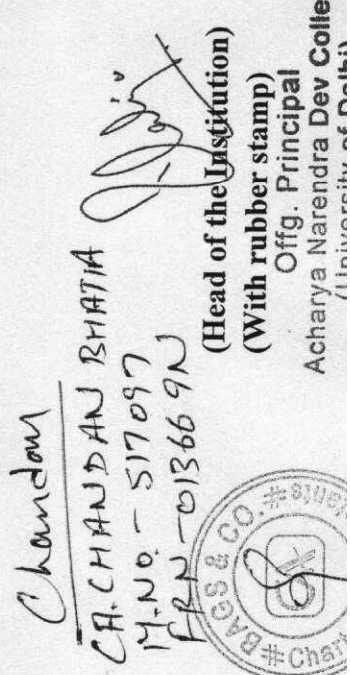 Chandan
CA. CHANDAN BHATIA
M.NO. - 517097
FRN - 013669N
BAGS & CO.
Chart
(Head of the Institution)
(With rubber stamp)
Offg. Principal
Acharya Narendra Dev Colle
(University of Delhi)